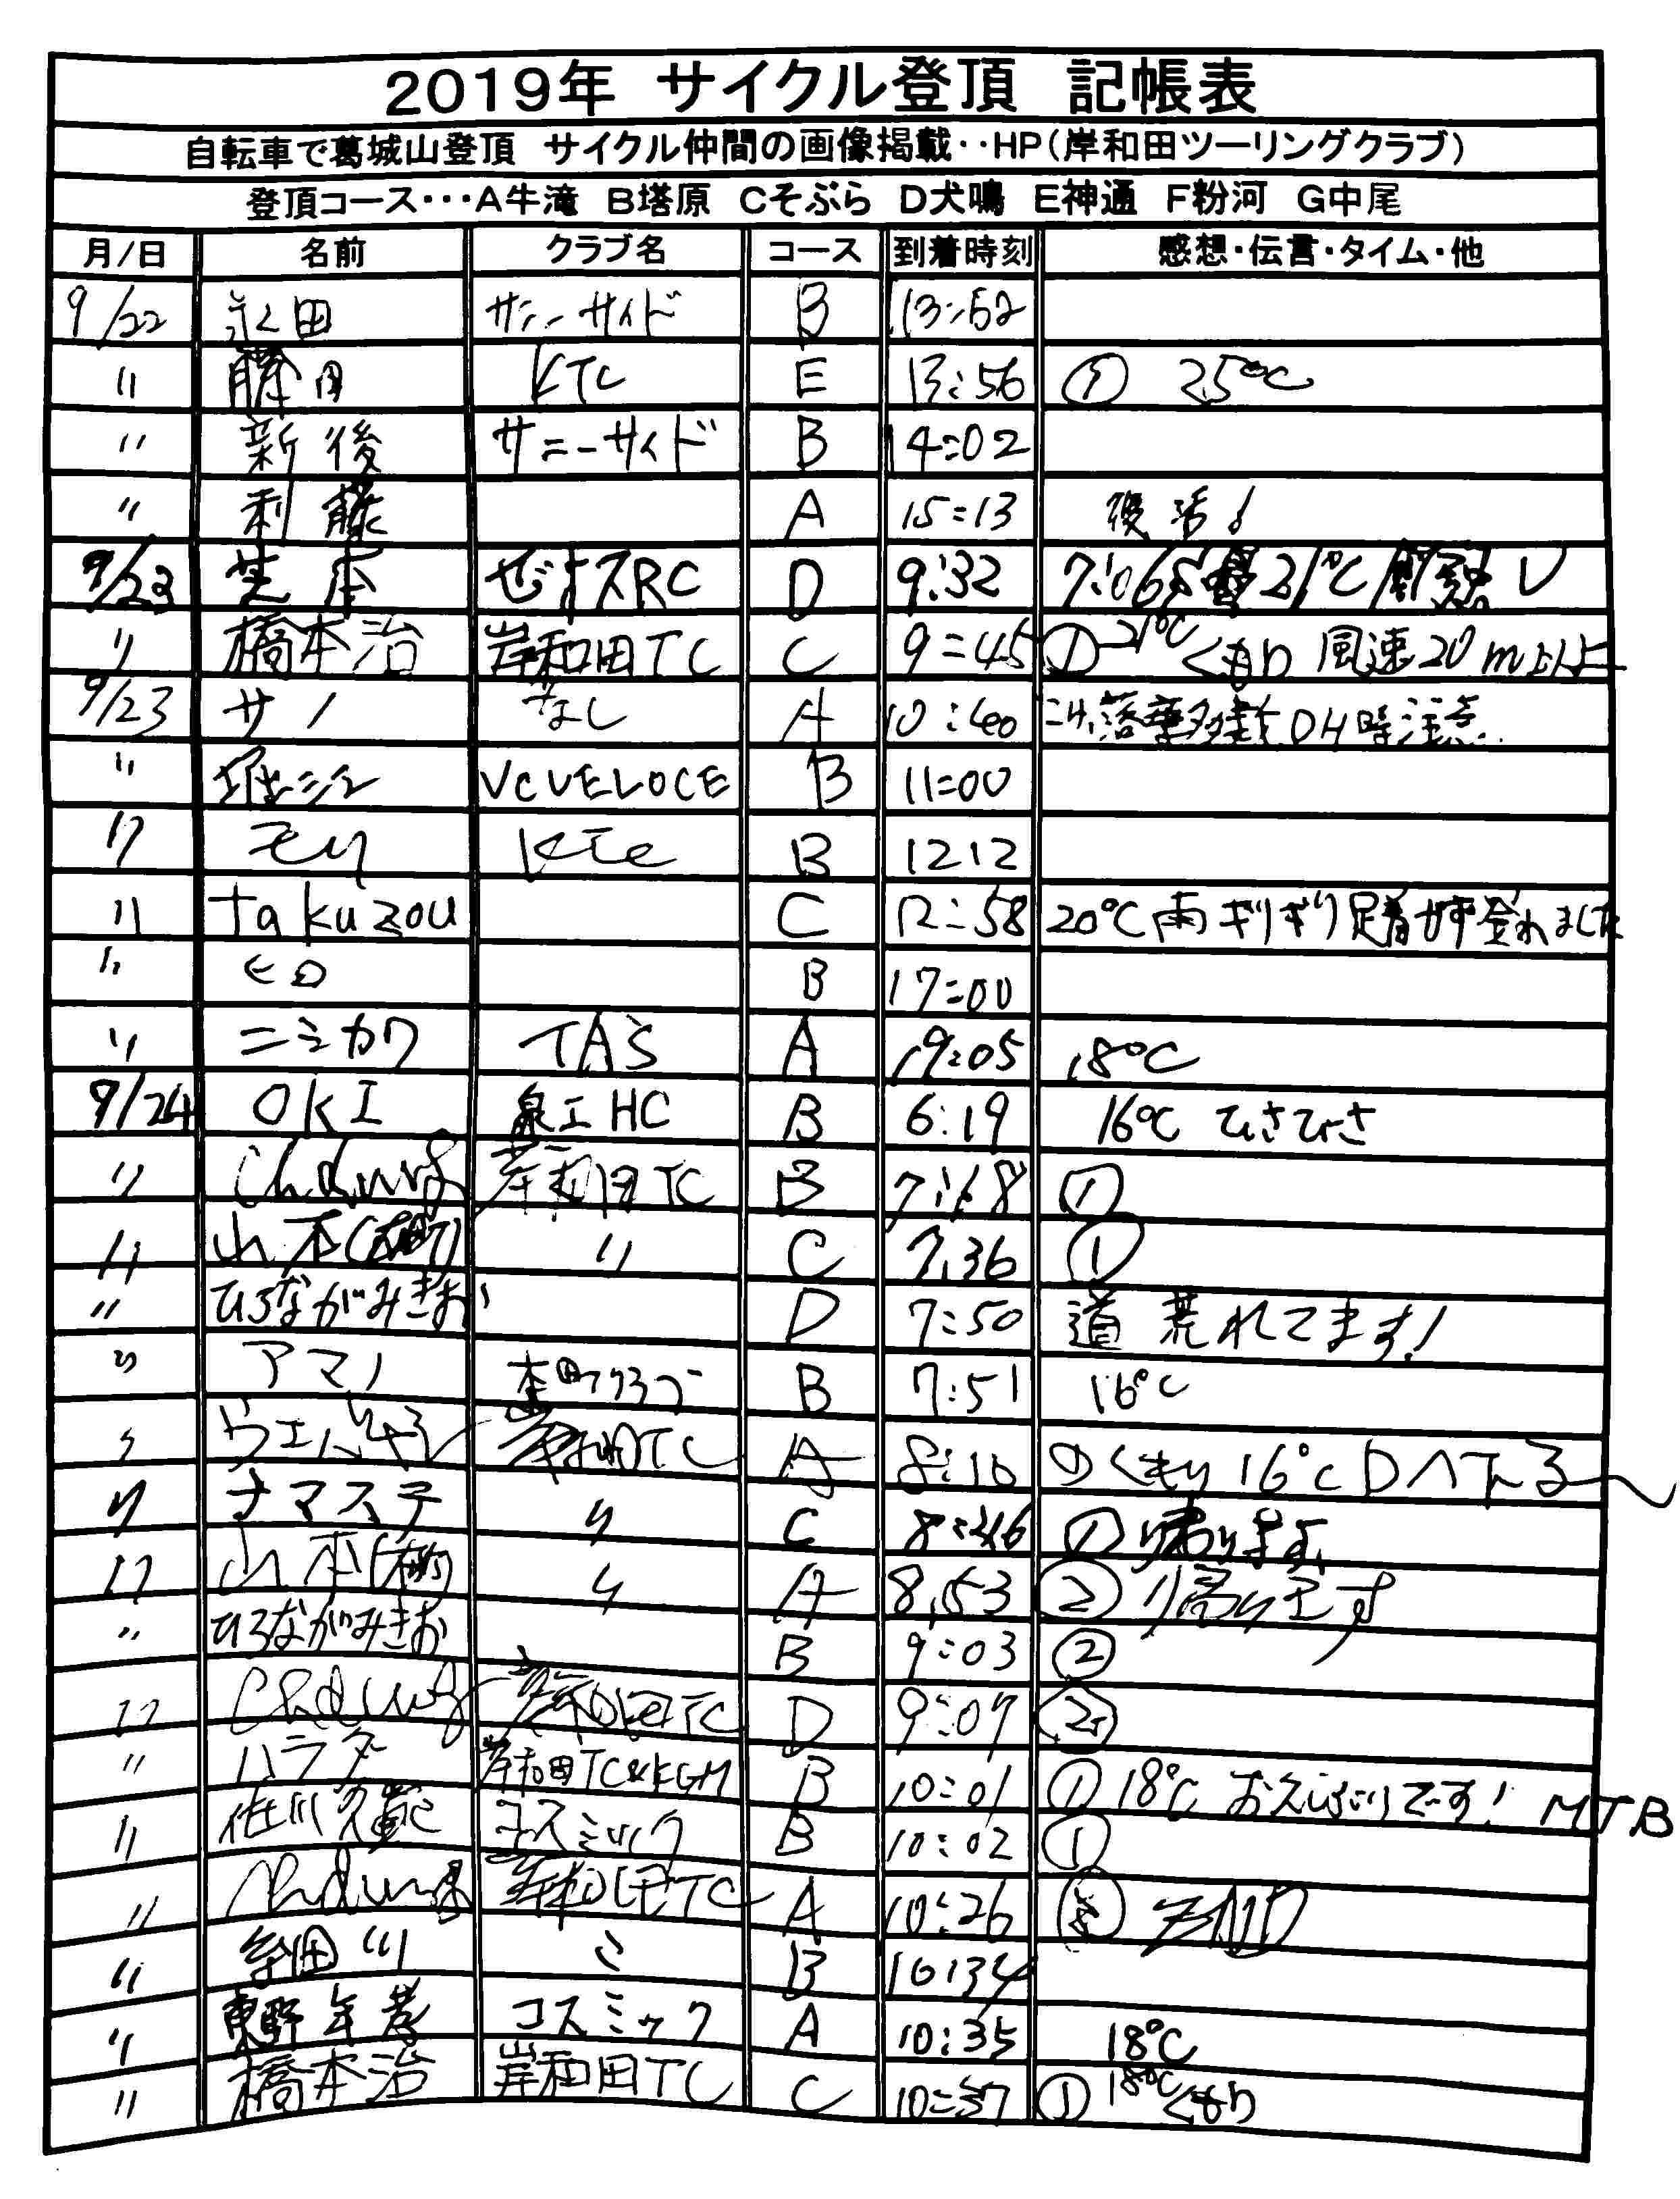 2019年 サイクル登頂 記帳表
自転車で葛城山登頂 サイクル仲間の画像掲載‥HP(岸和田ツーリングクラブ)
登頂コース･･･A牛滝 B塔原 Cそぶら D犬鳴 E神通 F粉河 G中尾
月/日 名前 クラブ名 コース 到着時刻 感想・伝言・タイム・他
9/22 永田 サニーサイド B 13:52
〃 藤田 KTC E 13:56 ① 25℃
〃 新後 サニーサイド B 14:02
〃 利藤 A 15:13 復活!
9/23 芝本 ゼオスRC D 9:32 7:06 21℃
〃 橋本治 岸和田TC C 9:45 ① 21℃ くもり 風速20m以上
9/23 サノ なし A 10:40 こけ、落葉多数 DH時注意
〃 VC VELOCE B 11:00
〃 モリ KTC B 12:12
〃 takuzou C 12:58 20℃ 雨ギリギリ足着かず登れました
〃 ヒロ B 17:00
〃 ニシカワ TAS A 19:05 18℃
9/24 OKI 泉工HC B 6:19 16℃ ひさびさ
〃 岸和田TC B ①
〃 山本 〃 C 7,36 ①
〃 ひろながみきお D 7:50 道荒れてます!
〃 アマノ クラブ B 7:51 16℃
〃 岸和田TC A 8:10 ① くもり 16℃ Dへ下る〜
〃 ナマステ 〃 C 8:46 ① 帰ります
〃 山本 〃 A 8,53 ② 帰ります
〃 ひろながみきお B 9:03 ②
〃 岸和田TC D 9:07 ②
〃 ハラダ 岸和田TC&KGM B 10:01 ① 18℃ おひさしぶりです! MTB
〃 コスミック B 10:02 ①
〃 岸和田TC A 10:26 ③
〃 B 10:34
〃 東野 コスミック A 10:35 18℃
〃 橋本治 岸和田TC C 10:37 ① 18℃ くもり